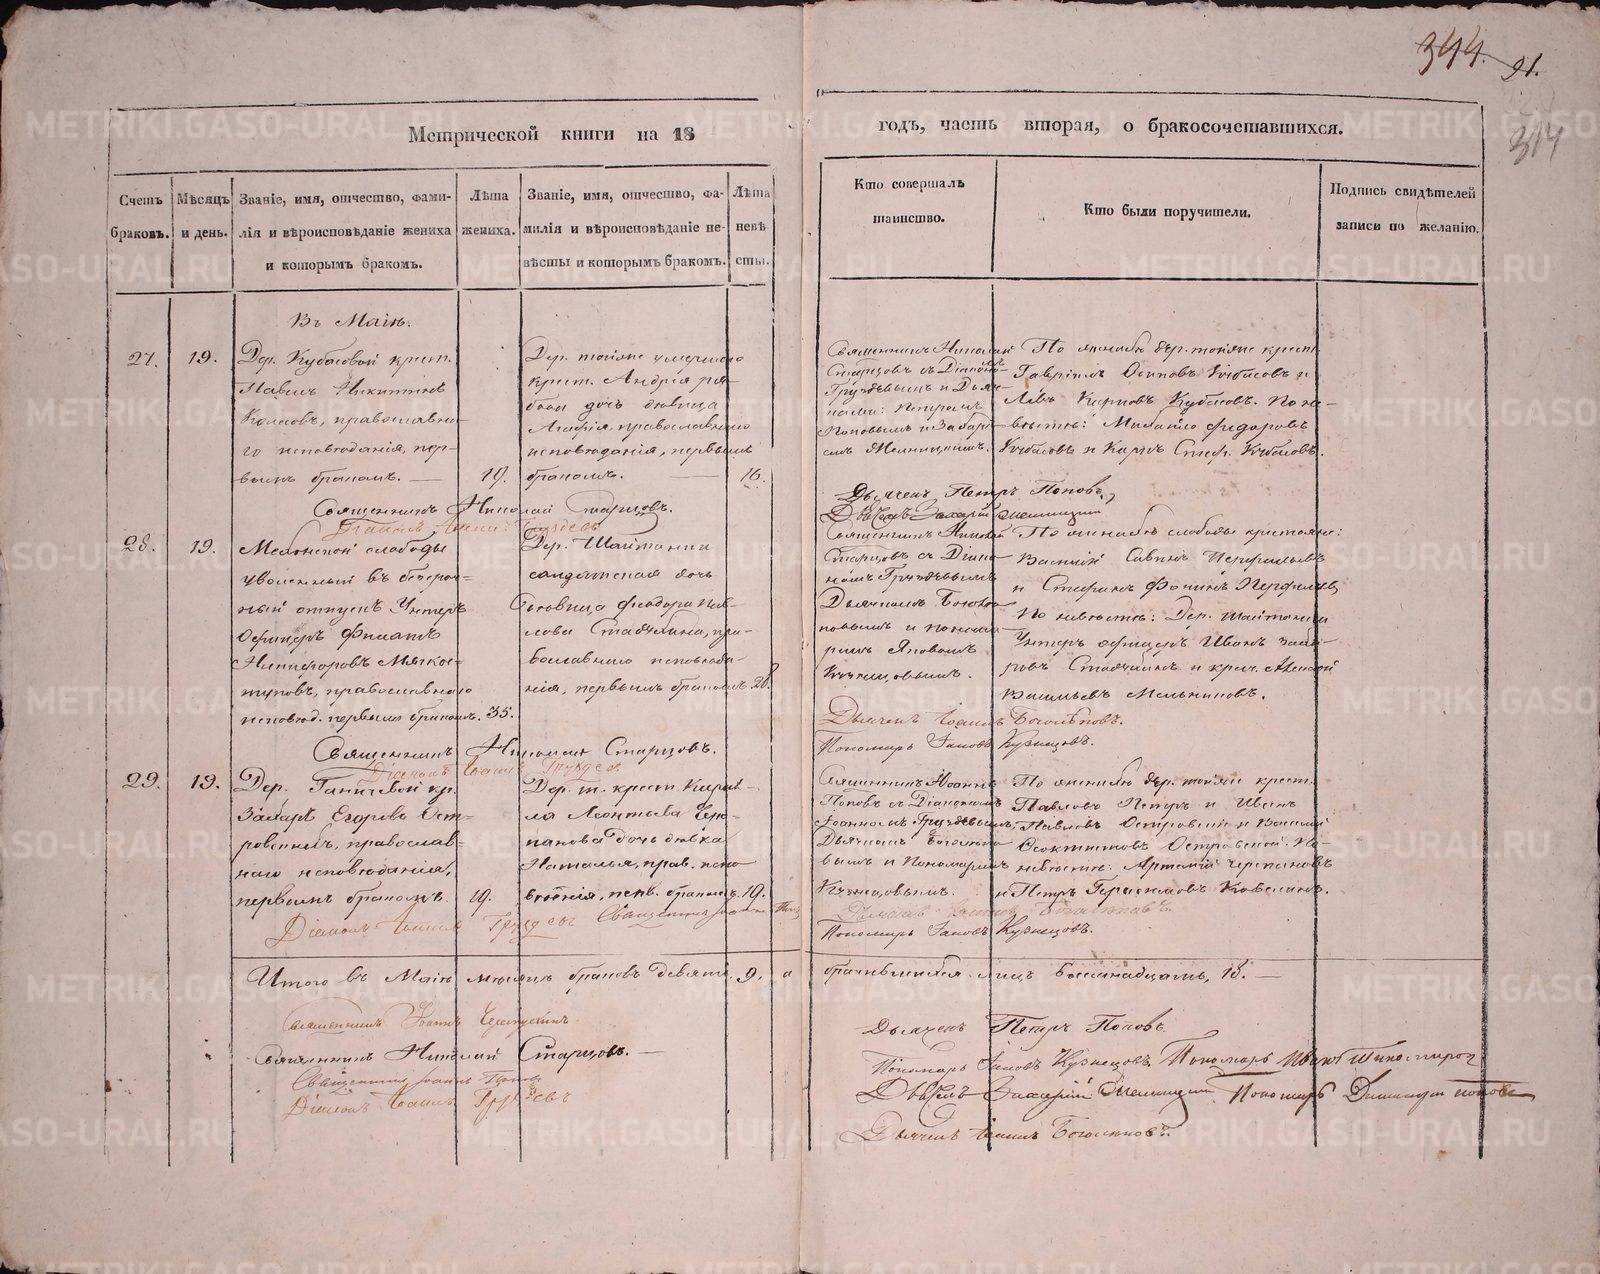 344. 91.
314
Метрической книги на 18
годъ, часть вторая, о бракосочетавшихся.
Счетъ браковъ.
Мѣсяцъ и день.
Званіе, имя, отчество, фами-
лія и вѣроисповѣданіе жениха
и которымъ бракомъ.
Лѣта
жениха.
Званіе, имя, отчество, фа-
милія и вѣроисповѣданіе не-
вѣсты и которымъ бракомъ.
Лѣта
невѣ
сты.
Кто совершалъ
таинство.
Кто были поручители.
Подпись свидѣтелей
записи по желанію.
Въ Маіѣ.
27.
19.
Дер. Кубасовой крест.
Павелъ Никитинъ
православна-
го исповѣданія, пер-
вымъ бракомъ. —
19.
Дер. тойже умершаго
крест. Андрея
дочь дѣвица
православнаго
исповѣданія, первымъ
бракомъ. —
16.
Священникъ Николай
Старцовъ съ Діакономъ
Груздевымъ и Дьяч-
ками: Петромъ
Поповымъ и Захарі-
емъ
По женихѣ дер. тойже крест.
Гавріилъ Осиповъ Кубасовъ и
Карповъ Кубасовъ. По не-
вѣстѣ: Михайло Федоровъ
Кубасовъ и Карпъ Стеф. Кубасовъ.
Священникъ Николай Старцовъ.
Дьячекъ Петръ Поповъ
Дьячекъ Захарій
28.
19.
слободы
уволенный въ безсроч-
ный отпускъ Унтеръ
Офицеръ Филатъ
Никифоровъ Мягко-
ступовъ, православнаго
исповѣд. первымъ бракомъ. 35.
Дер. Шайтанки
солдатская дочь
дѣвица Феодора
пра-
вославнаго исповѣда-
нія, первымъ бракомъ 28.
Священникъ Николай
Старцовъ съ Діако-
номъ Груздевымъ
Дьячкомъ Боголѣ-
повымъ и понома-
ремъ Яковомъ
Кузнецовымъ.
По женихѣ слободы крестьяне:
Василій Савинъ Перфильевъ
и Стефанъ Фокинъ Перфильевъ
По невѣстѣ: Дер. Шайтанки
Унтеръ офицеръ Иванъ Заха-
ровъ и крест. Алексѣй
Васильевъ Мельниковъ.
Священникъ Николай Старцовъ.
Діаконъ Іоаннъ Груздевъ
Дьячекъ Іоаннъ Боголѣповъ.
Пономарь Іаковъ Кузнецовъ.
29.
19.
Дер. Ганичевой кр.
Захаръ Егоровъ Ост-
ровскихъ, православ-
наго исповѣданія,
первымъ бракомъ. 19.
Дер. т. крест. Кирил-
ла Леонтьева Чере-
панова дочь дѣвка
Наталья, прав. испо-
вѣданія, перв. бракомъ. 19.
Священникъ Іоаннъ
Поповъ съ Діакономъ
Іоанномъ Груздевымъ,
Дьячкомъ Боголѣпо-
вымъ и Пономаремъ
Кузнецовымъ.
По женихѣ дер. тойже крест.
Павловъ Петръ и Иванъ
Павловъ Островскіе и Василій
Островской. По
невѣстѣ: Артемій Черепановъ
и Петръ Герасимовъ
Діаконъ Іоаннъ Груздевъ Священникъ Іоаннъ Поповъ
Дьячекъ Іоаннъ Боголѣповъ.
Пономарь Іаковъ Кузнецовъ.
Итого въ Маіѣ мѣсяцѣ браковъ девять. 9. а
брачившихся лицъ восемнадцать, 18. —
Священникъ Іоаннъ
Священникъ Николай Старцовъ. —
Священникъ Іоаннъ Поповъ
Діаконъ Іоаннъ Груздевъ
Дьячекъ Петръ Поповъ
Пономарь Іаковъ Кузнецовъ Пономарь Иванъ Тихомировъ
Дьячекъ Захарій Пономарь Поповъ
Дьячекъ Іоаннъ Боголѣповъ.
METRIKI.GASO-URAL.RU